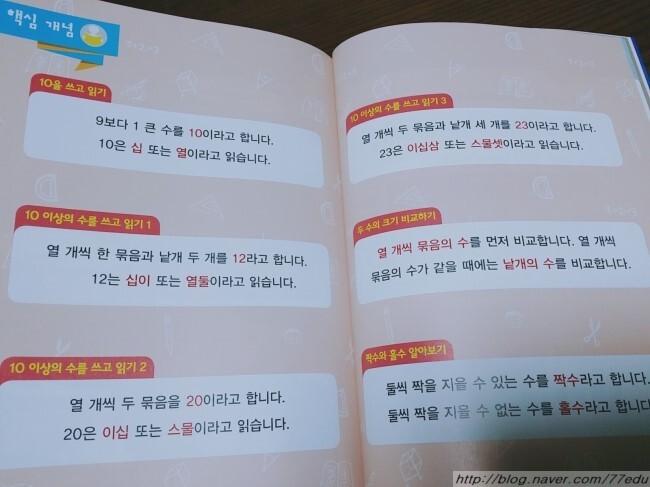 핵심 개념
10을 쓰고 읽기
9보다 1 큰 수를 10이라고 합니다.
10은 십 또는 열이라고 읽습니다.
10 이상의 수를 쓰고 읽기 1
열 개씩 한 묶음과 낱개 두 개를 12라고 합니다.
12는 십이 또는 열둘이라고 읽습니다.
10 이상의 수를 쓰고 읽기 2
열 개씩 두 묶음을 20이라고 합니다.
20은 이십 또는 스물이라고 읽습니다.
10 이상의 수를 쓰고 읽기 3
열 개씩 두 묶음과 낱개 세 개를 23이라고 합니다.
23은 이십삼 또는 스물셋이라고 읽습니다.
두 수의 크기 비교하기
열 개씩 묶음의 수를 먼저 비교합니다. 열 개씩
묶음의 수가 같을 때에는 낱개의 수를 비교합니다.
짝수와 홀수 알아보기
둘씩 짝을 지을 수 있는 수를 짝수라고 합니다.
둘씩 짝을 지을 수 없는 수를 홀수라고 합니다
http://blog.naver.com/77edu